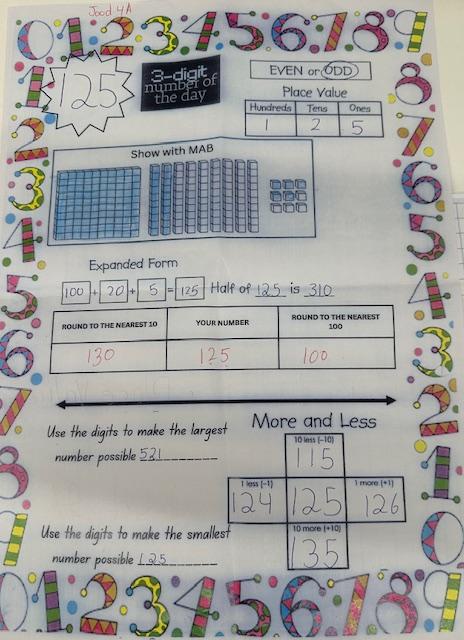 Jood 4A
125
3-digit
number of
the day
EVEN or ODD
Place Value
Hundreds Tens Ones
1 2 5
Show with MAB
Expanded Form
100 + 20 + 5 = 125 Half of 125 is 310
ROUND TO THE NEAREST 10 YOUR NUMBER ROUND TO THE NEAREST 100
130 125 100
More and Less
Use the digits to make the largest
number possible 521
10 less (-10)
115
1 less (-1) 1 more (+1)
124 125 126
10 more (+10)
135
Use the digits to make the smallest
number possible 125